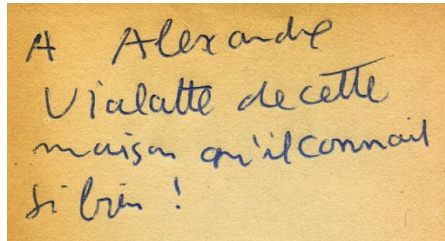 A Alexandre
Vialatte de cette
maison qu'il connait
si bien !